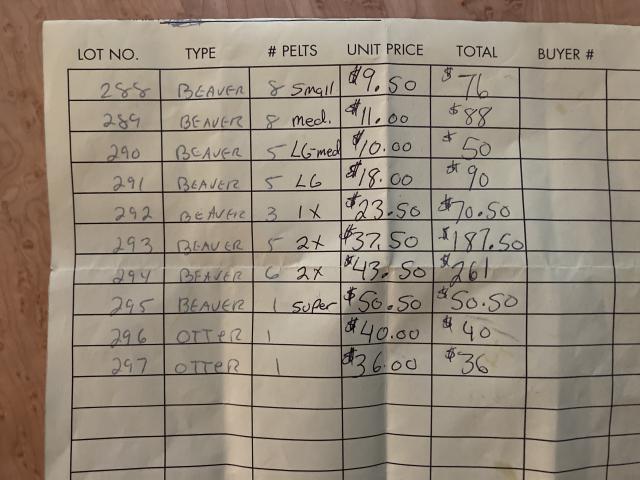 LOT NO. TYPE # PELTS UNIT PRICE TOTAL BUYER #
288 BEAVER 8 Small $9.50 $76
289 BEAVER 8 med. $11.00 $88
290 BEAVER 5 LG-med $10.00 $50
291 BEAVER 5 LG $18.00 $90
292 BEAVER 3 1X $23.50 $70.50
293 BEAVER 5 2X $37.50 $187.50
294 BEAVER 6 2X $43.50 $261
295 BEAVER 1 Super $50.50 $50.50
296 OTTER 1 $40.00 $40
297 OTTER 1 $36.00 $36